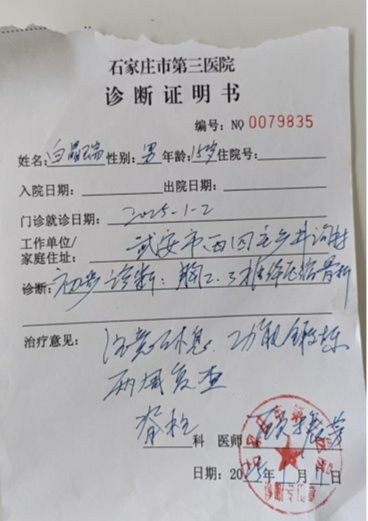 石家庄市第三医院
诊断证明书
编号: NO 0079835
姓名: 白晶瑞 性别: 男 年龄: 15岁 住院号:
入院日期: 出院日期:
门诊就诊日期: 2025-1-2
工作单位/
家庭住址: 武安市西
诊断: 初步诊断: 胸2、3椎体压缩骨折
治疗意见: 注意休息、功能锻炼
两周复查
脊柱 科 医师
日期: 2025年1月